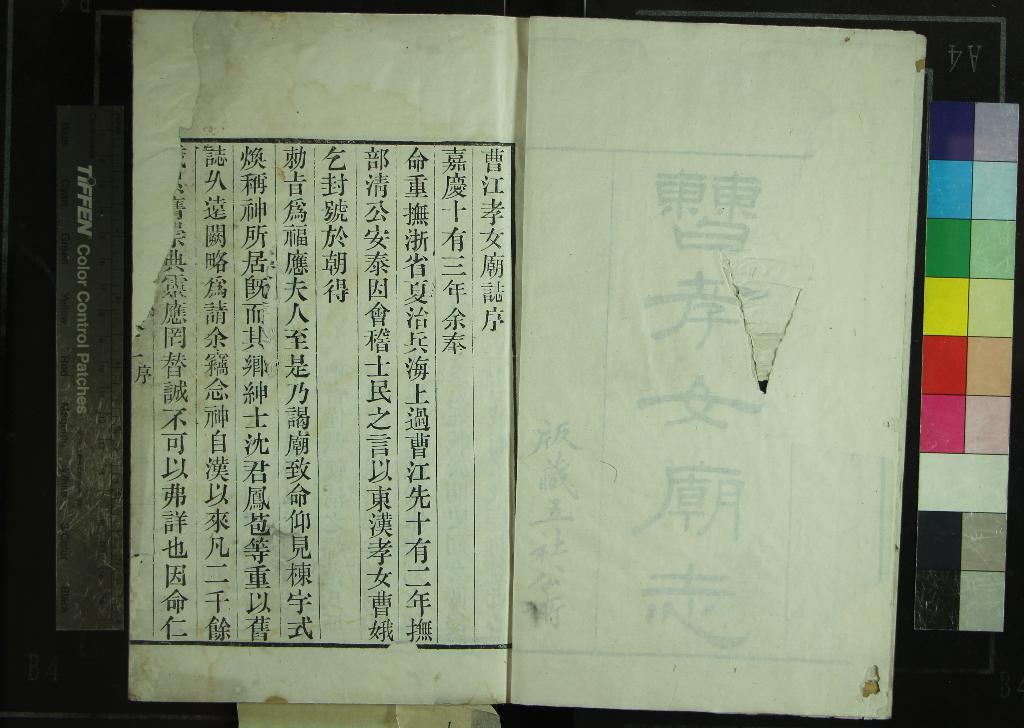 曹孝女廟志
版藏五社公所
曹江孝女廟誌序
嘉慶十有三年余奉
命重撫浙省夏治兵海上過曹江先十有二年撫
部清公安泰因會稽士民之言以東漢孝女曹娥
乞封號於朝得
勅旨為福應夫人至是乃謁廟致命仰見棟宇式
煥稱神所居既而其鄉紳士沈君鳳苞等重以舊
誌久遠闕略為請余竊念神自漢以來凡二千餘
舊崇典靈應罔替誠不可以弗詳也因命仁
序
TIFFEN Color Control Patches
A4
B4